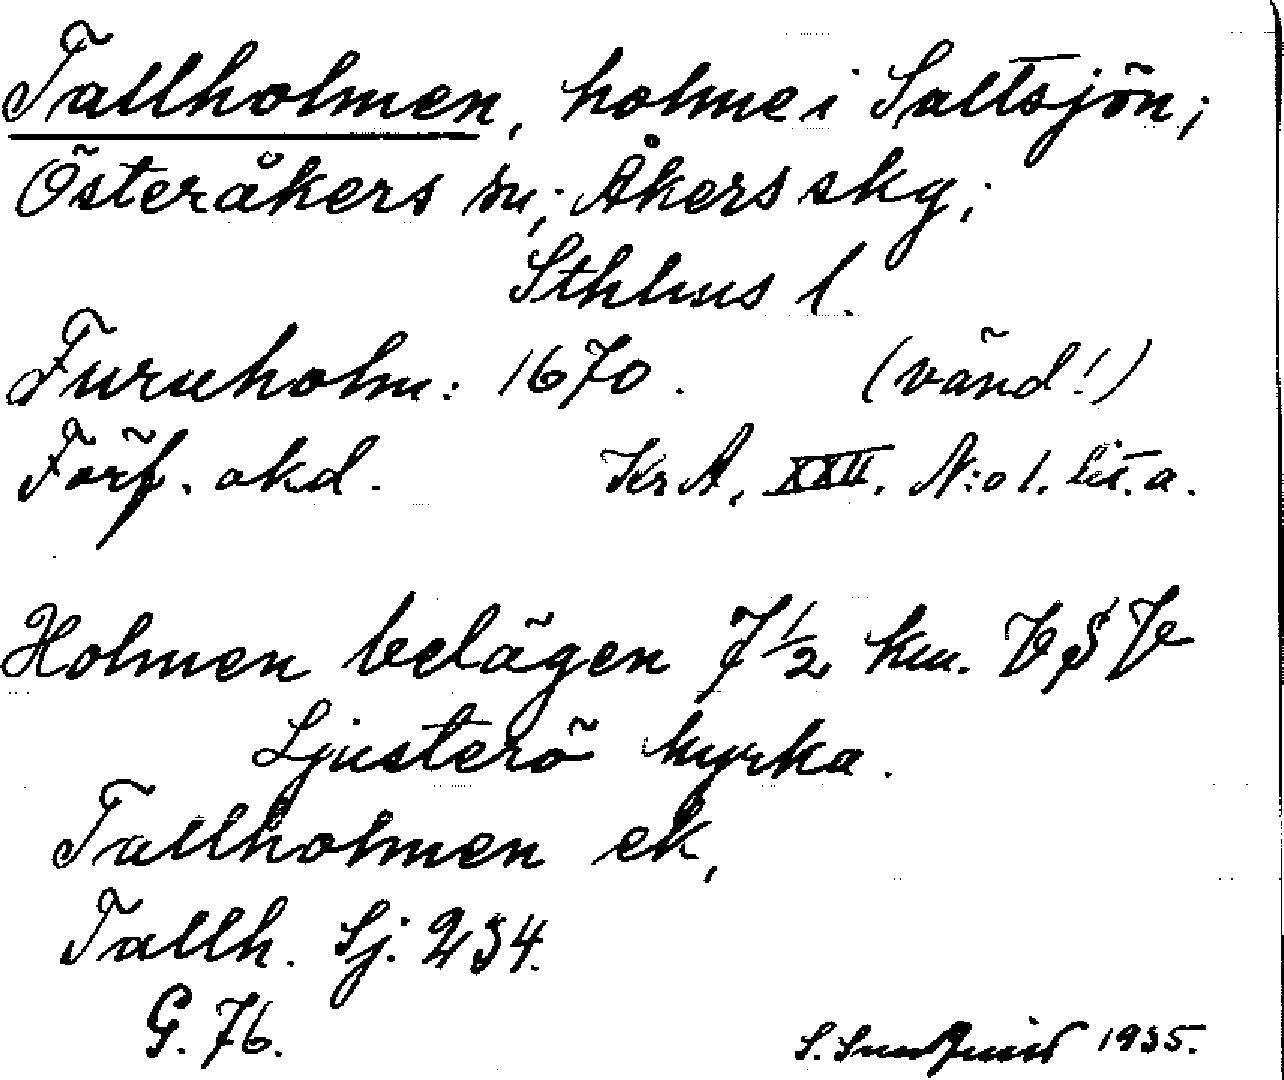 Tallholmen, holme i Saltsjön;
Österåkers sn; Åkers skg;
Sthlms l.
Furuholm: 1670. (vänd!)
Förf. okd. KrA, XXII. N:o 1. lit. a.
Holmen belägen 7 1/2 km. VSV
Ljusterö kyrka.
Tallholmen ek,
Tallh. Sj. 234.
G. 76.
S. Sundquist 1935.